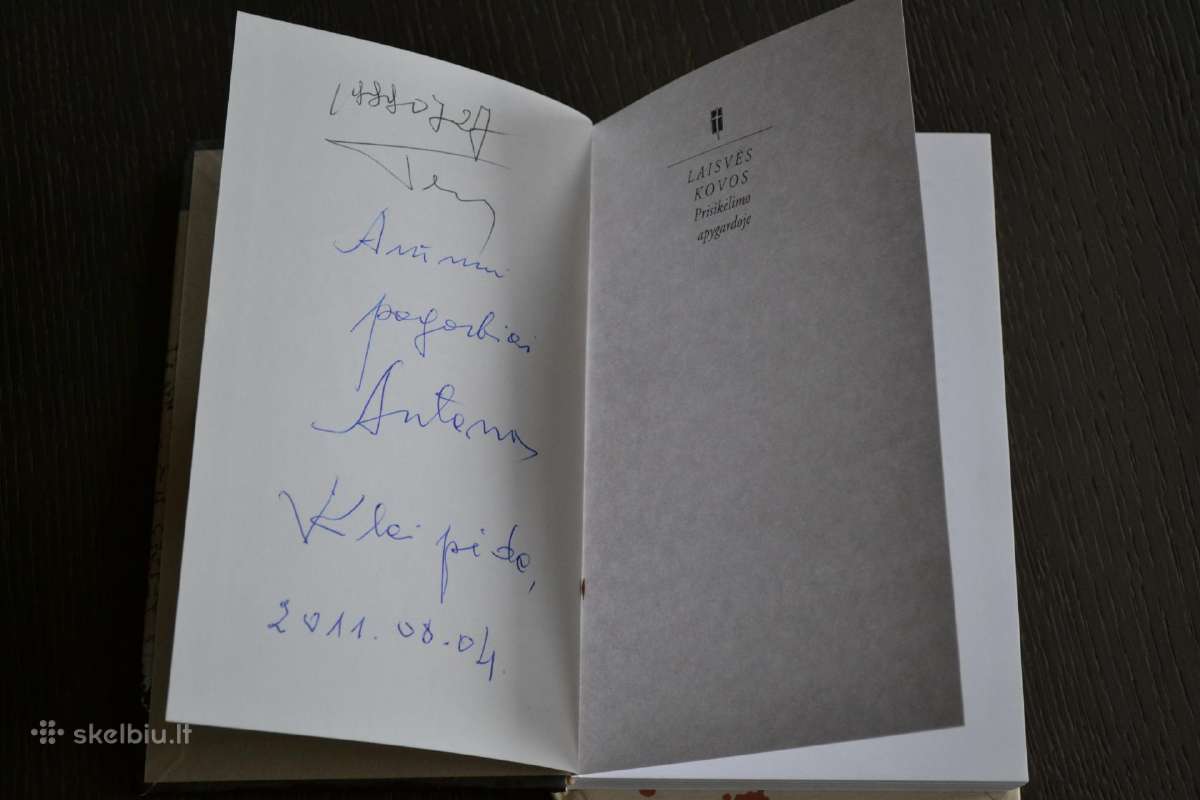 19990727
Arūnui
pagarbiai
Antanas
Klaipėda,
2011.08.04.
LAISVĖS
KOVOS
Prisikėlimo
apygardoje
skelbiu.lt